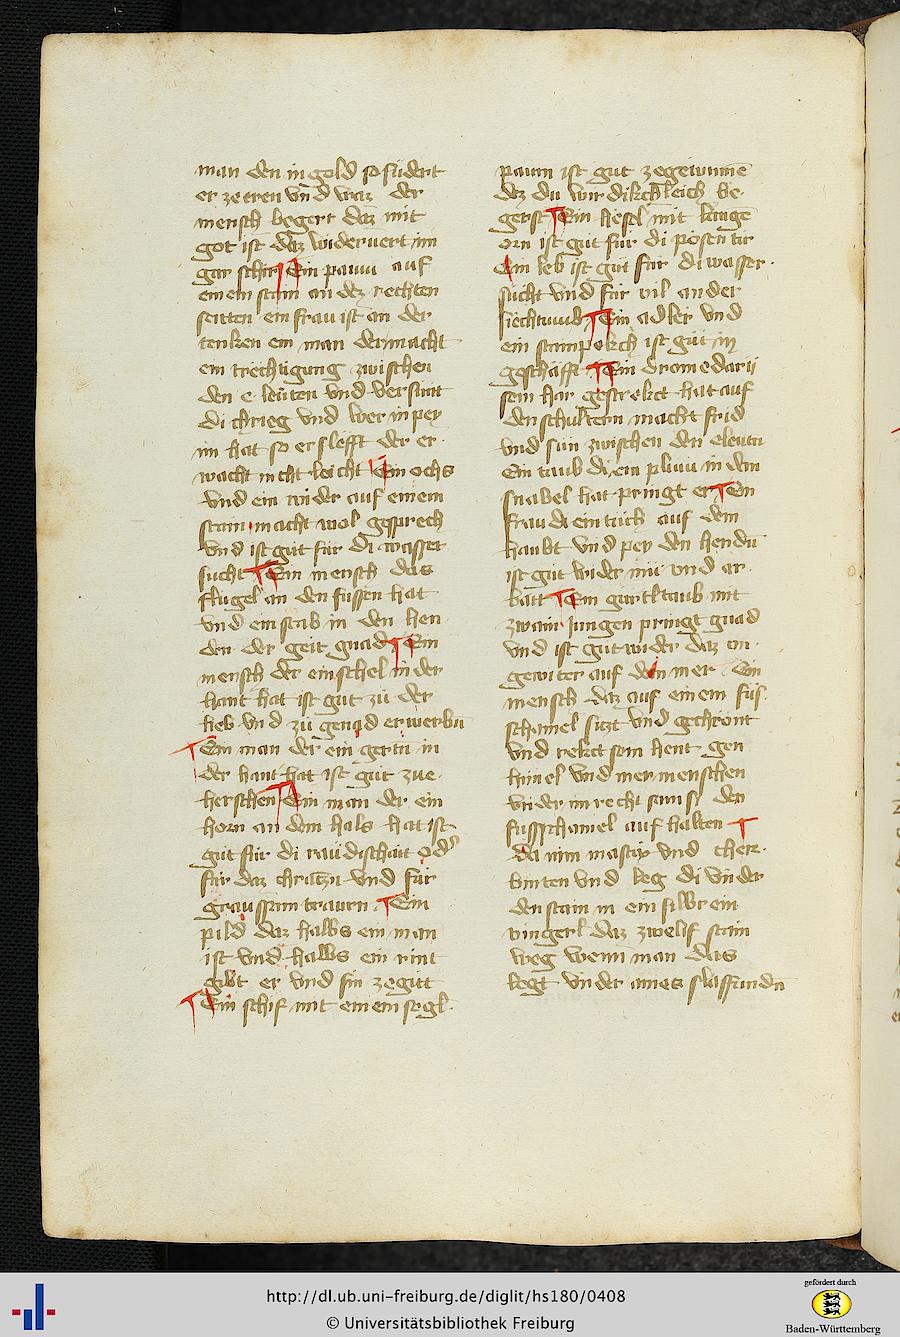 man den in gold so füdert
er ze eren vnd waz der
mensch begert daz mit
got ist daz widervert im
gar schir Ein pawm auf
einem stain an dez rechten
seitten ein fraw ist an der
tenken ein man der macht
ein trechtigung zwischen
den e leuten vnd versünt
di chrieg vnd wer in pey
im hat so er slefft der er
wacht nicht leicht Ein ochs
vnd ein wider auf einem
stain macht wol gesprech
vnd ist gut für di wasser
sucht Ein mensch das
flugel an den füssen hat
vnd ein stab in den hen
den der geit gnad Ein
mensch der ein sichel in der
hant hat ist gut zü der
lieb vnd zu genad erwerbn
Ein man der ein gertn in
der hant hat ist gut zue
herschen Ein man der ein
horn an dem hals hat ist
gut für di raüdischait oder
für daz chraczn vnd für
graussam traurn Ein
pild daz halbs ein man
ist vnd halbs ein rint
gibt er vnd sin ze gitt
Ein schif mit einem segl
pawm ist gut ze gewinnē
dez du wirdikchleich be
gerst Ein hesel mit lange
orn ist gut für di pösen tir
Ein leb ist gut für di wasser
sucht vnd für vil ander
siechtumb Ein adler vnd
ein stainpokch ist güt in
geschäfft Ein dromedarii
sein har gestrekct hat auf
den schultern macht frid
vnd sün zwischen den eleutn
Ein taub di ein plum in dem
snabel hat pringt er Ein
fraw di ein tuch auf dem
haubt vnd pey den hendn
ist gut wider mü vnd ar
bait Ein gürtltaub mit
zwain jungen pringt gnad
vnd ist gut wider daz vn
gewiter auf dem mer Ein
mensch daz auf einem füs
schamel siczt vnd gechront
vnd rekct sein hent gen
himel vnd vier menschen
vnder im recht sam si den
fussschamel auf halten
da nim mastix vnd ther
binten vnd leg di vnder
den stain in ein silbrein
vingerl daz zwelf stain
weg wenn man das
legt vnder aines slaffunden
http://dl.ub.uni-freiburg.de/diglit/hs180/0408
© Universitätsbibliothek Freiburg
gefördert durch
Baden-Württemberg